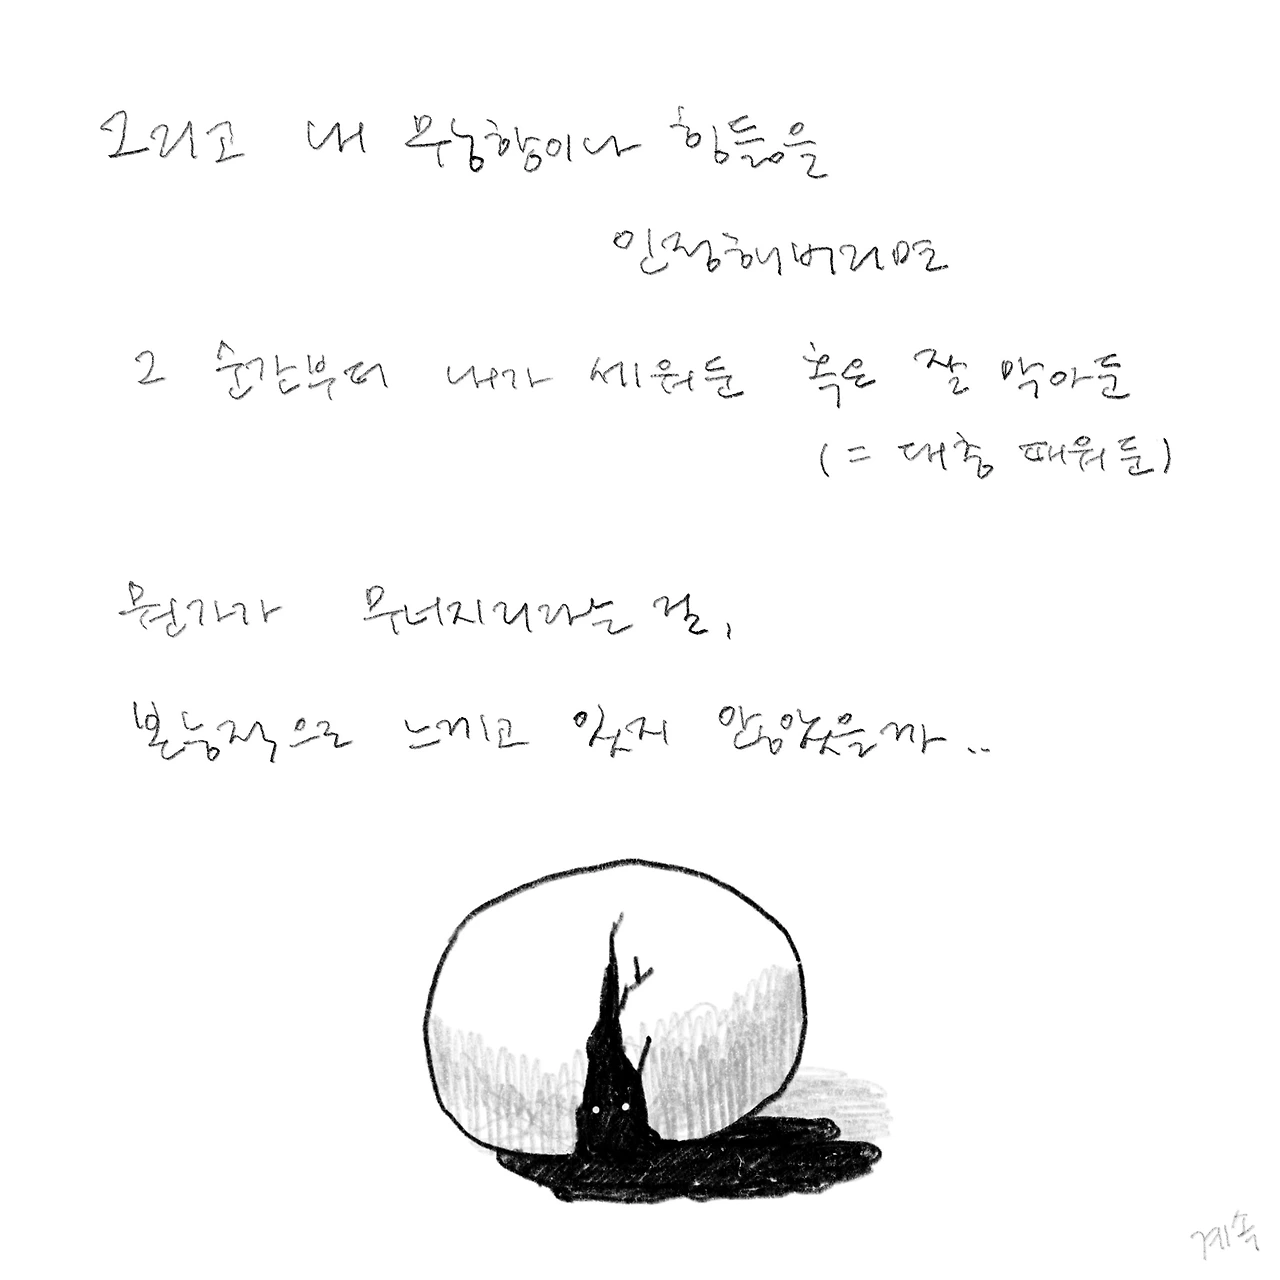 그리고 내 무능함이나 힘듦을
인정해버리면
그 순간부터 내가 세워둔 혹은 잘 막아둔
(= 대충 때워둔)
뭔가가 무너지리라는 걸,
본능적으로 느끼고 있지 않았을까..
계속